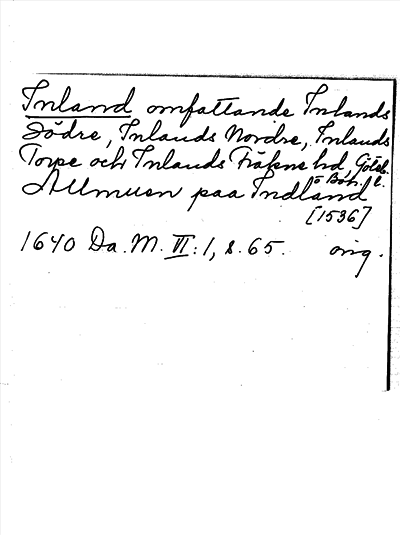 Inland omfattande Inlands
Södre, Inlands Nordre, Inlands
Torpe och Inlands Fräkne hd. Göteb.
o Boh. l.
Allmuen paa Indland
[1536]
1640 Da. M. VI: 1, s. 65. orig.